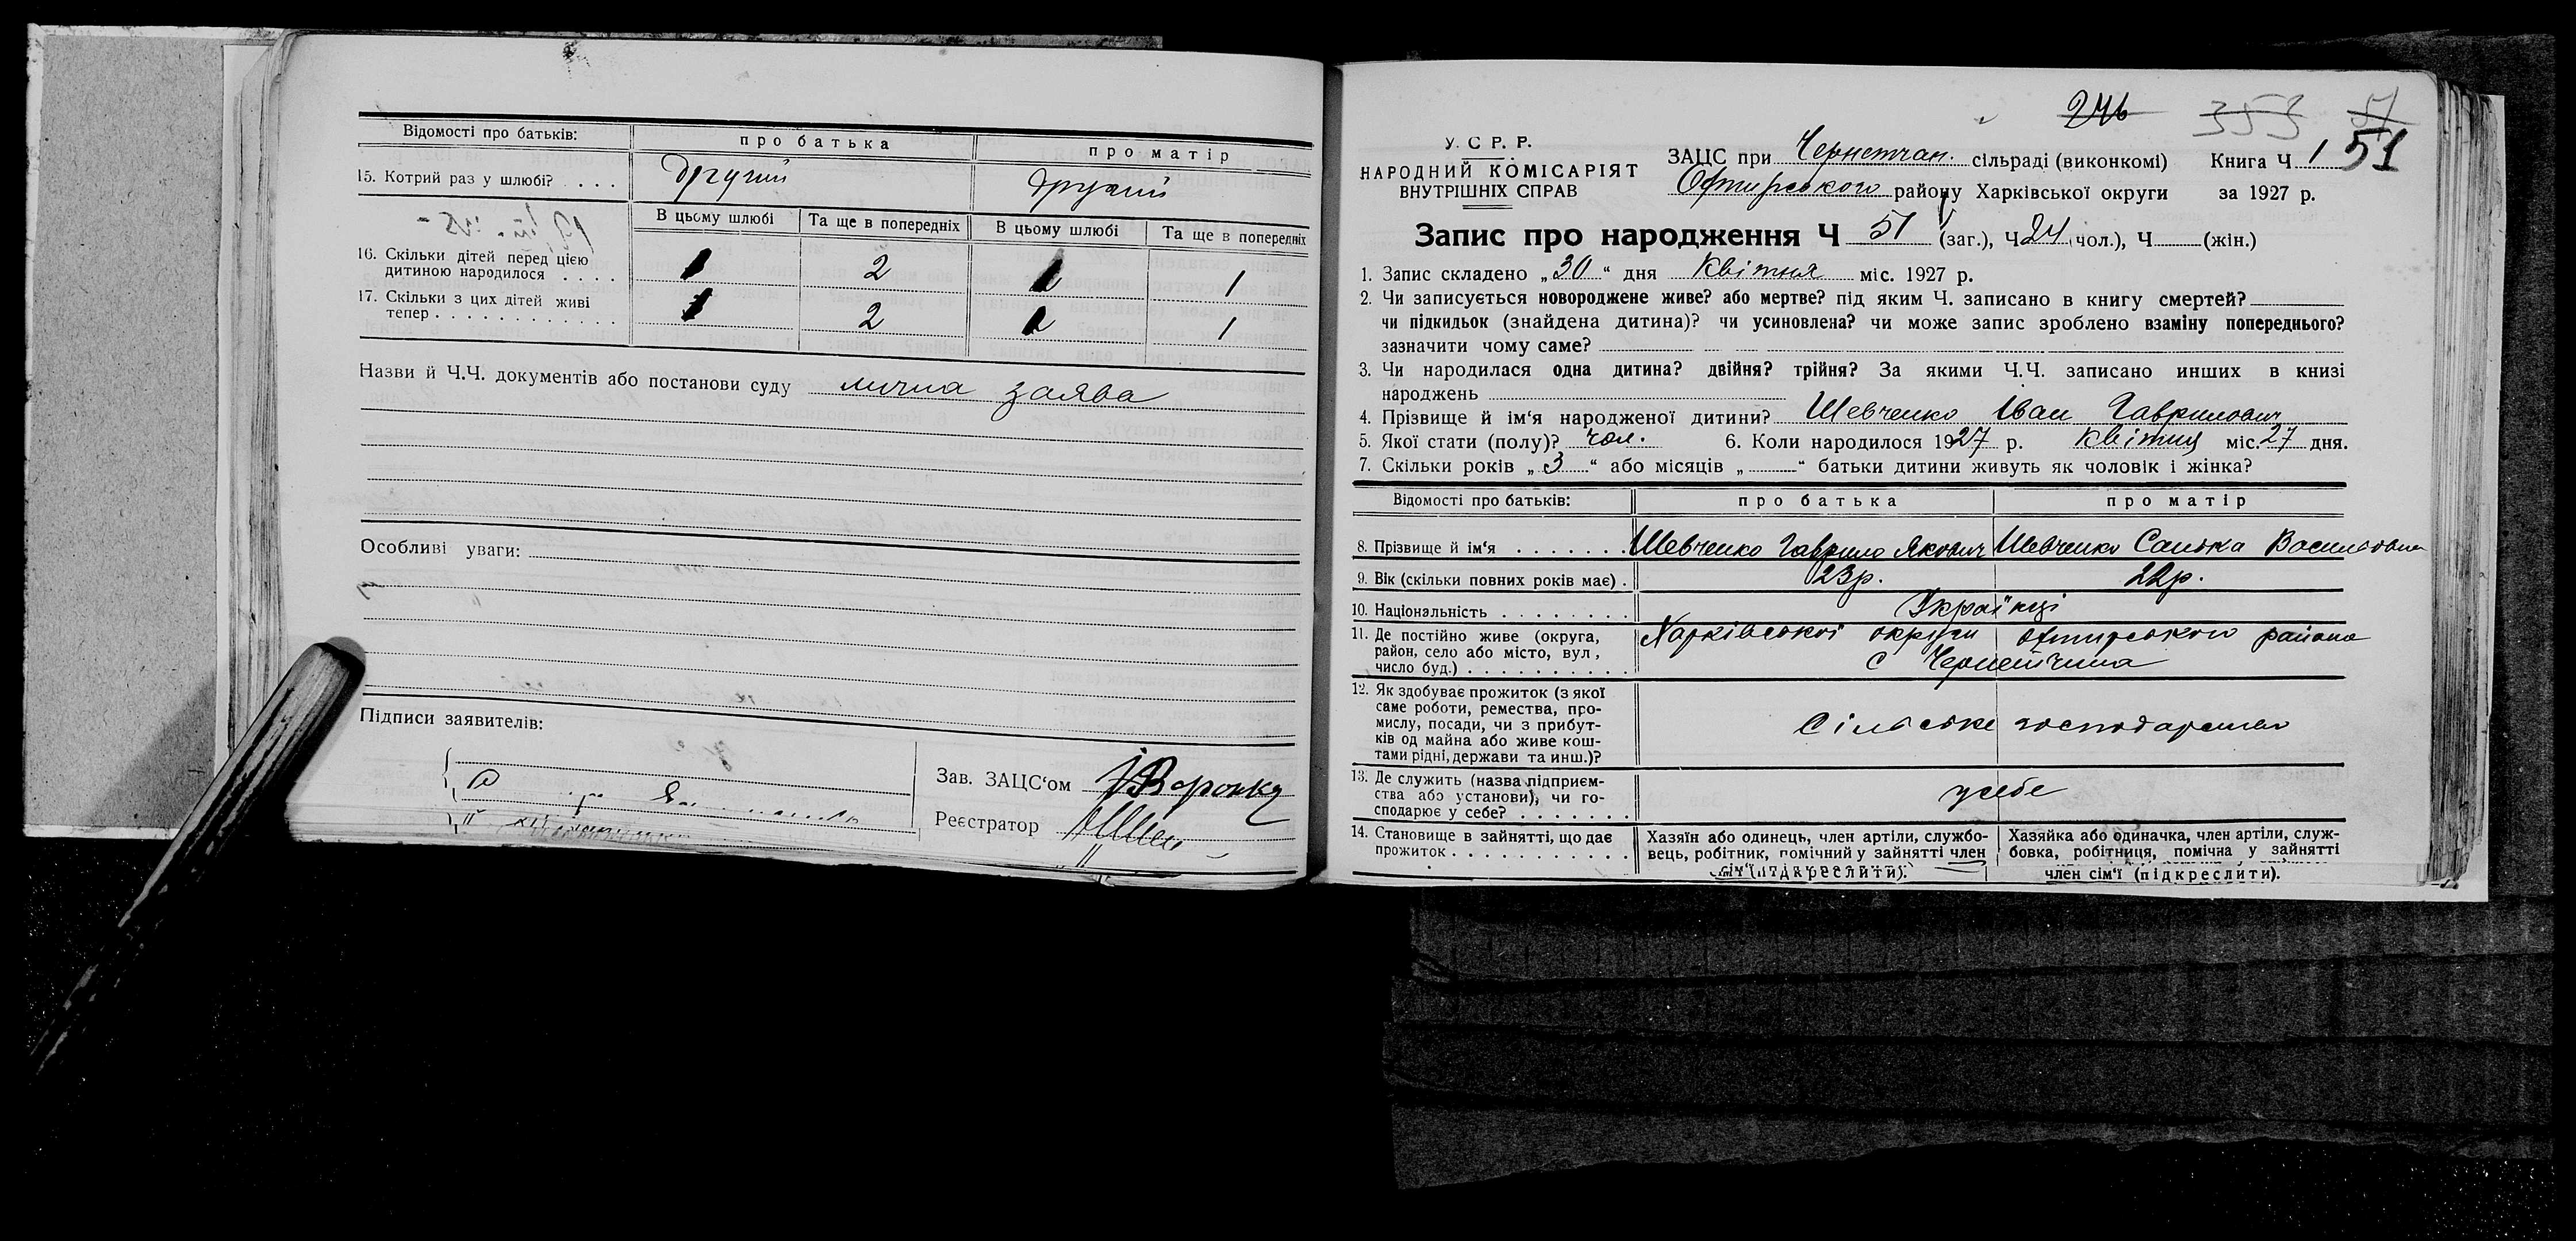 Відомості про батьків:
про батька
про матір
15. Котрий раз у шлюбі? . . . .
Другий
другий
В цьому шлюбі
Та ще в попередніх
В цьому шлюбі
Та ще в попередніх
16. Скільки дітей перед цією
дитиною народилося . . . .
2
1
17. Скільки з цих дітей живі
тепер . . . . . . . . . . . . .
2
1
Назви й Ч.Ч. документів або постанови суду лична заява
Особливі уваги:
Підписи заявителів:
Зав. ЗАЦС‘ом
Реєстратор
246 353 51
У. С Р. Р.
НАРОДНИЙ КОМІСАРІЯТ
ВНУТРІШНІХ СПРАВ
ЗАЦС при Чернетчан. сільраді (виконкомі) Книга Ч 1 51
Охтирського району Харківської округи за 1927 р.
Запис про народження Ч 51 (заг.), Ч 24 (чол.), Ч (жін.)
1. Запис складено „30“ дня Квітня міс. 1927 р.
2. Чи записується новороджене живе? або мертве? під яким Ч. записано в книгу смертей?
чи підкидьок (знайдена дитина)? чи усиновлена? чи може запис зроблено взаміну попереднього?
зазначити чому саме?
3. Чи народилася одна дитина? двійня? трійня? За якими Ч.Ч. записано инших в книзі
народжень
4. Прізвище й ім‘я народженої дитини? Шевченко Іван Гаврилович
5. Якої стати (полу)? чол. 6. Коли народилося 1927 р. Квітня міс. 27 дня.
7. Скільки років „3“ або місяців „ “ батьки дитини живуть як чоловік і жінка?
Відомості про батьків:
про батька
про матір
8. Прізвище й ім‘я . . . . . . .
Шевченко Гаврило Якович
Шевченко Санька Васильовна
9. Вік (скільки повних років має) .
23р.
22р.
10. Національність . . . . . . . .
Українці
11. Де постійно живе (округа,
район, село або місто, вул,
число буд.) . . . . . . . . . .
Харківської округи Охтирського района
с Чернетчина
12. Як здобуває прожиток (з якої
саме роботи, ремества, про-
мислу, посади, чи з прибут-
ків од майна або живе кош-
тами рідні, держави та инш.)?
Сільське господарство
13. Де служить (назва підприєм-
ства або установи), чи го-
сподарює у себе? . . . . . . .
у себе
14. Становище в зайнятті, що дає
прожиток . . . . . . . . . . .
Хазяїн або одинець, член артіли, службо-
вець, робітник, помічний у зайнятті член
сім‘ї (підкреслити).
Хазяйка або одиначка, член артіли, служ-
бовка, робітниця, помічна у зайнятті
член сім‘ї (підкреслити).